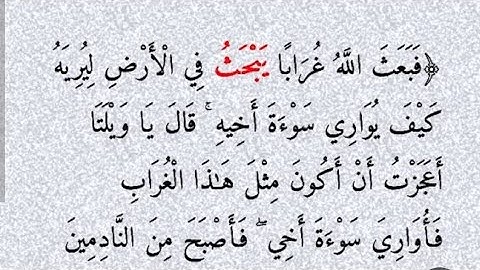 ﴿فَبَعَثَ اللَّهُ غُرَابًا يَبْحَثُ فِي الْأَرْضِ لِيُرِيَهُ
كَيْفَ يُوَارِي سَوْءَةَ أَخِيهِ ۚ قَالَ يَا وَيْلَتَا
أَعَجَزْتُ أَنْ أَكُونَ مِثْلَ هَٰذَا الْغُرَابِ
فَأُوَارِيَ سَوْءَةَ أَخِي ۖ فَأَصْبَحَ مِنَ النَّادِمِينَ